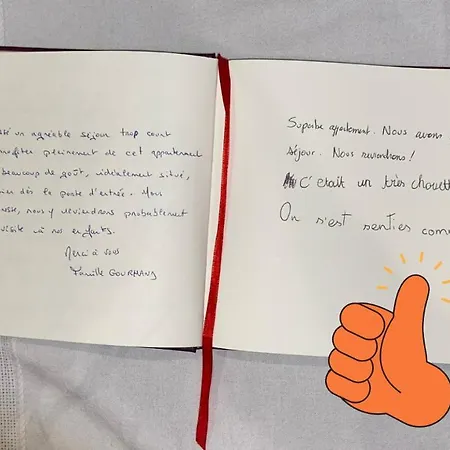 un agréable séjour trop court
profiter pleinement de cet appartement
beaucoup de goût, idéalement situé,
dès la porte d'entrée. Nous
, nous y reviendrons probablement
visite à nos enfants.
Merci à vous
Famille GOURMAND
Superbe appartement. Nous avons
séjour. Nous reviendrons!
C'était un très chouette
On s'est senties comm